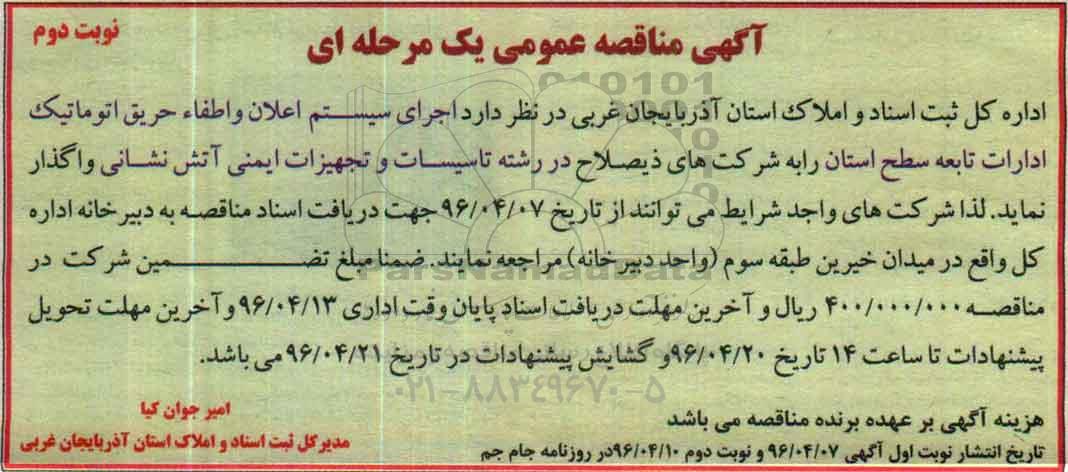 نوبت دوم
آگهی مناقصه عمومی یک مرحله ای
اداره کل ثبت اسناد و املاک استان آذربایجان غربی در نظر دارد اجرای سیستم اعلان و اطفاء حریق اتوماتیک
ادارات تابعه سطح استان رابه شرکت های ذیصلاح در رشته تاسیسات و تجهیزات ایمنی آتش نشانی واگذار
نماید. لذا شرکت های واجد شرایط می توانند از تاریخ ۹۶/۰۴/۰۷ جهت دریافت اسناد مناقصه به دبیرخانه اداره
کل واقع در میدان خیرین طبقه سوم (واحد دبیرخانه) مراجعه نمایند. ضمنا مبلغ تضمین شرکت در
مناقصه ۴۰۰/۰۰۰/۰۰۰ ریال و آخرین مهلت دریافت اسناد پایان وقت اداری ۹۶/۰۴/۱۳ و آخرین مهلت تحویل
پیشنهادات تا ساعت ۱۴ تاریخ ۹۶/۰۴/۲۰و گشایش پیشنهادات در تاریخ ۹۶/۰۴/۲۱ می باشد.
۰۲۱-۸۸۳۴۹۶۷۰-۵
هزینه آگهی بر عهده برنده مناقصه می باشد
تاریخ انتشار نوبت اول آگهی ۹۶/۰۴/۰۷ و نوبت دوم ۹۶/۰۴/۱۰در روزنامه جام جم
امیر جوان کیا
مدیرکل ثبت اسناد و املاک استان آذربایجان غربی